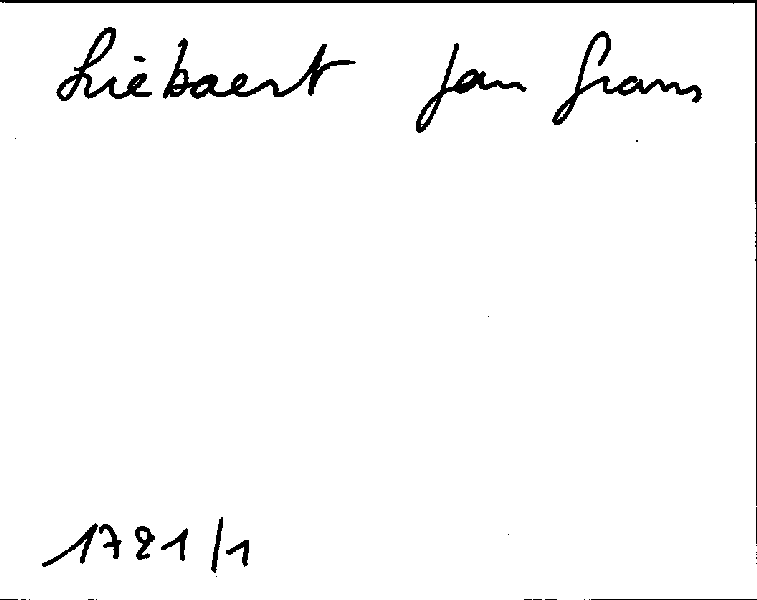 Liebaert Jan Frans
1721/1